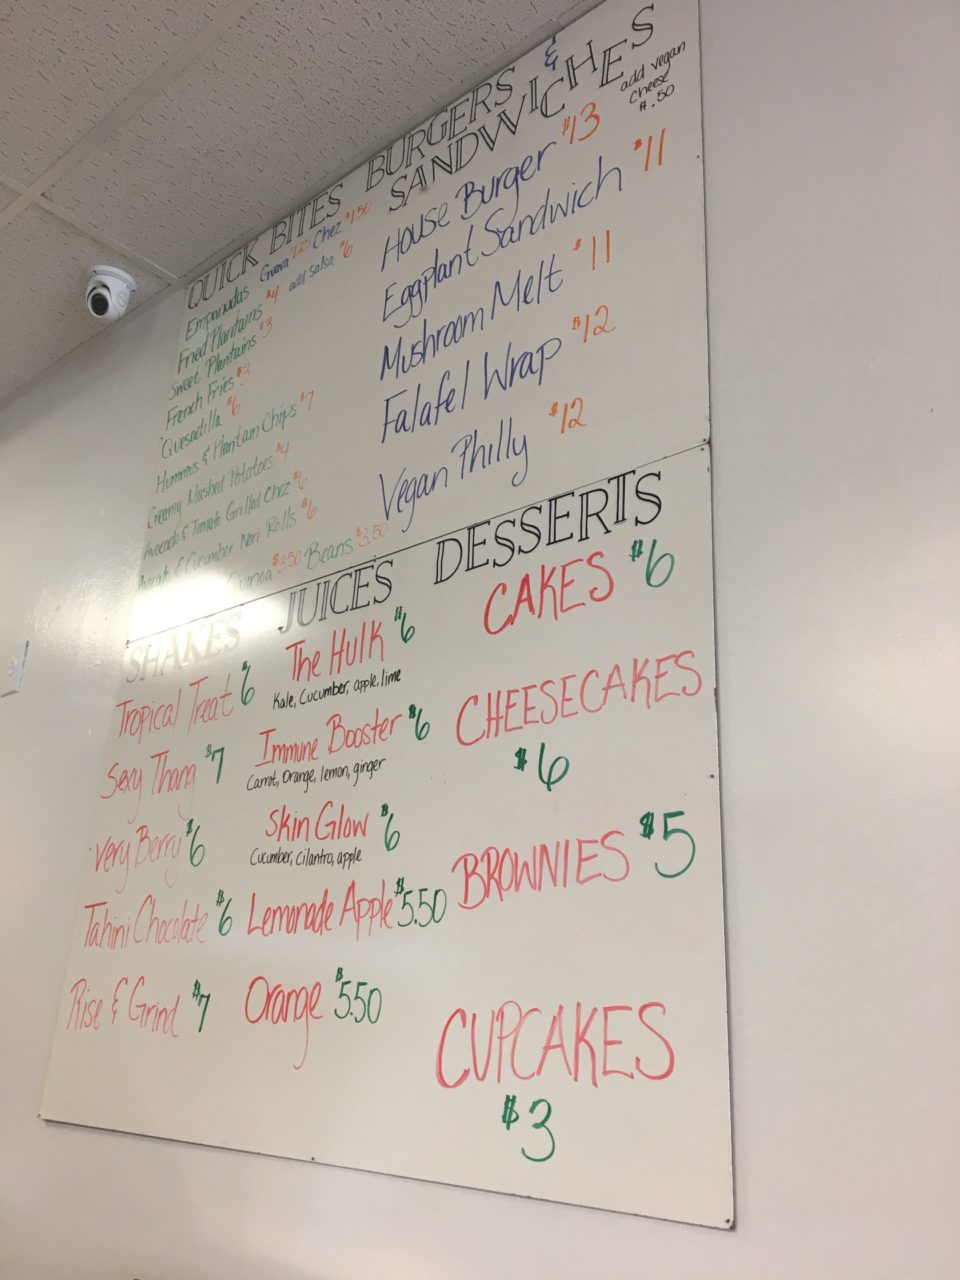 QUICK BITES
Empanadas Guava $1.25 Chez $1.50
Fried Plantains $4 add salsa $6
Sweet Plantains $3
French Fries $3
Quesadilla $6
Hummus & Plantain Chips $7
Creamy Mashed Potatoes $4
Avocado & Tomato Grilled Chez $6
Avocado & Cucumber Nori Rolls $6
Quinoa $3.50 Beans $3.50
BURGERS &
SANDWICHES
add vegan
cheese
$.50
House Burger $13
Eggplant Sandwich $11
Mushroom Melt $11
Falafel Wrap $12
Vegan Philly $12
SHAKES
Tropical Treat $6
Sexy Thang $7
Very Berry $6
Tahini Chocolate $6
Rise & Grind $7
JUICES
The Hulk $6
Kale, Cucumber, apple, lime
Immune Booster $6
Carrot, Orange, lemon, ginger
Skin Glow $6
Cucumber, cilantro, apple
Lemonade Apple $5.50
Orange $5.50
DESSERTS
CAKES $6
CHEESECAKES
$6
BROWNIES $5
CUPCAKES
$3